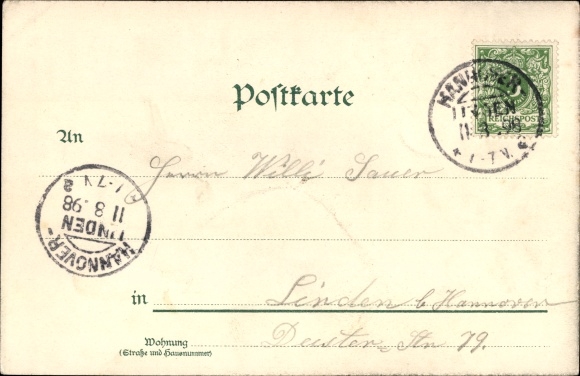 Postkarte
HANNOVER
LINDEN
11 8 98
* 1-7 V.
REICHSPOST
An
Herrn Willi Sauer
1-7 V
11 8 .98
LINDEN
HANNOVER-
in Linden b Hannover
Wohnung
(Straße und Hausnummer)
Deister-Str 79.